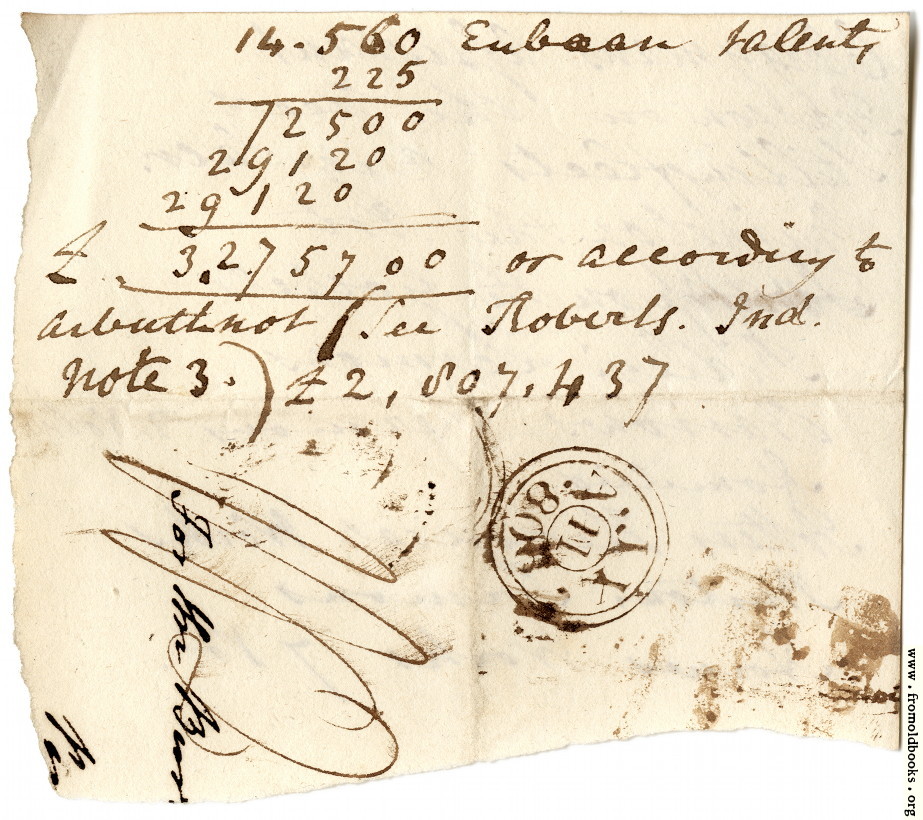 14.560 Eubœan talents
225
72500
29120
29120
£. 3,275700 or according to
Arbuthnot (See Roberts. Ind.
Note 3.) £2,807,437
808
For the
www.fromoldbooks.org